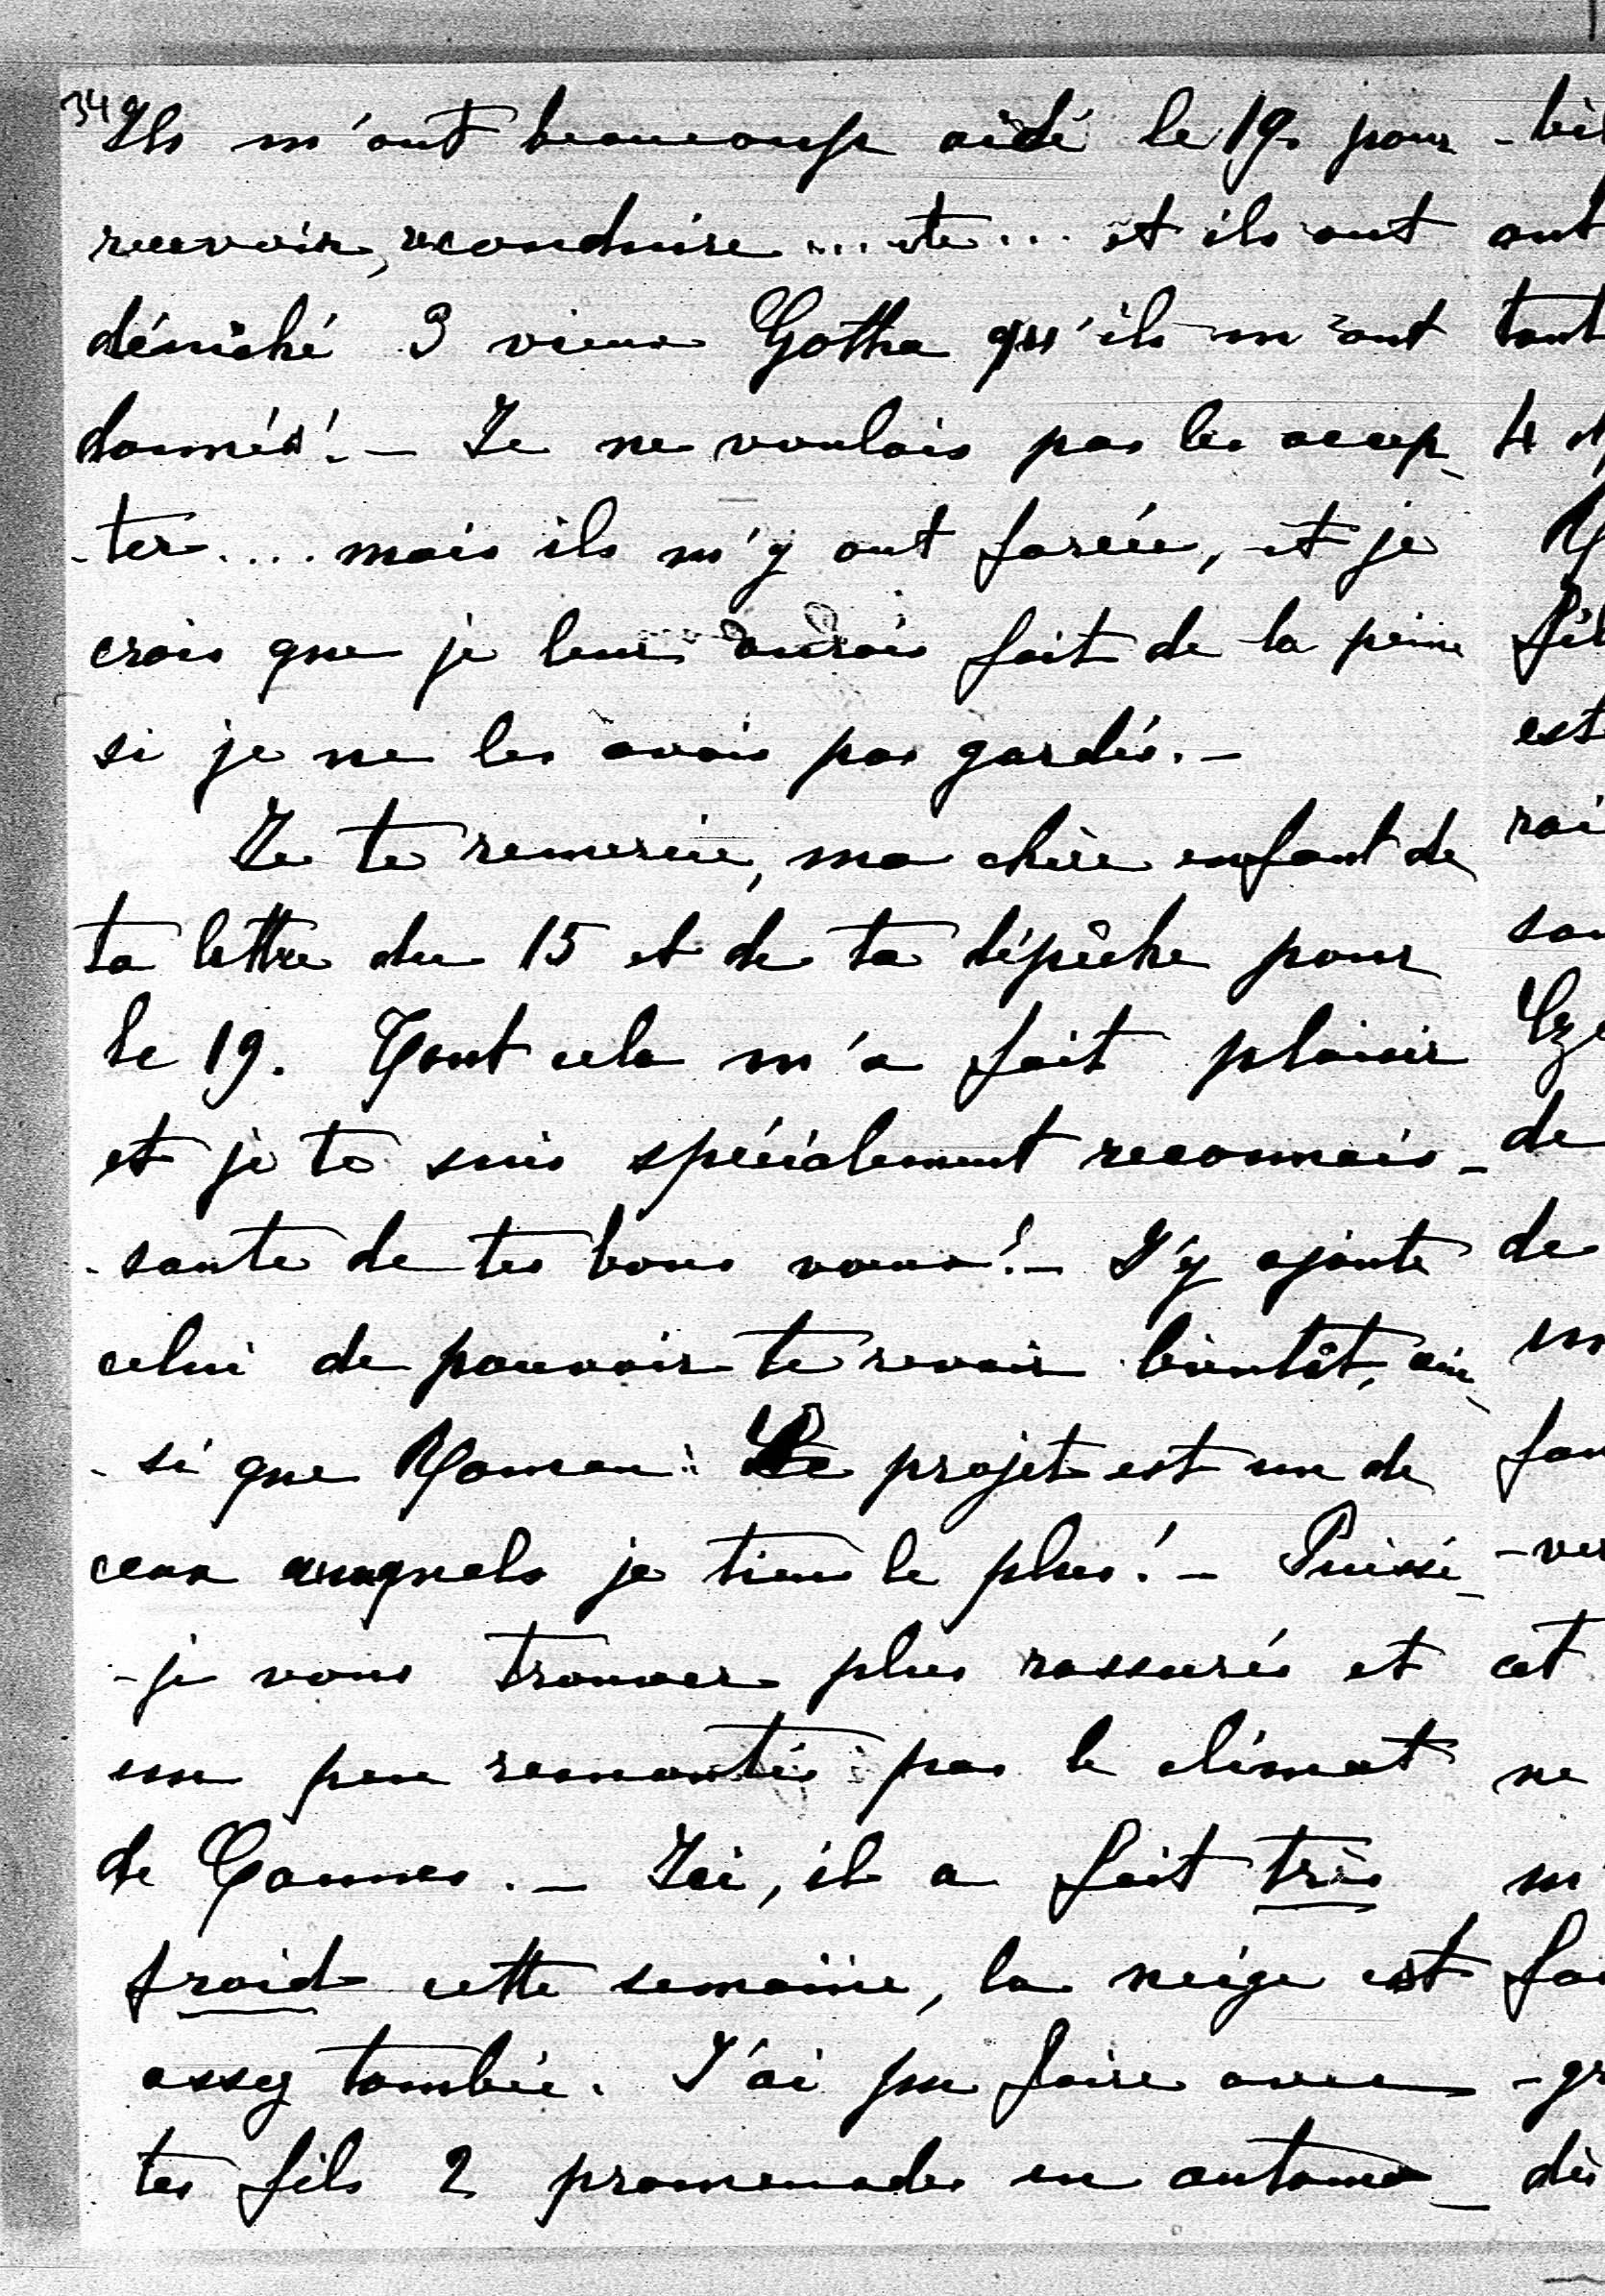 34
Ils m'ont beaucoup aidé le 19. pour
recevoir, reconduire ... etc ... et ils ont
déniché 3 vieux Gotha qu'ils m'ont
donnés! – Je ne voulais pas les accep-
-ter.... mais ils m'y ont forcée, et je
crois que je leur aurais fait de la peine
si je ne les avais pas gardés. –
Je te remercie, ma chère enfant de
ta lettre du 15 et de ta dépêche pour
le 19. Tout cela m'a fait plaisir
et je te suis spécialement reconnais-
-sante de tes bons vœux! – J'y ajoute
celui de pouvoir te revoir bientôt, ain-
-si que Roman: Ce projet est un de
ceux auxquels je tiens le plus! – Puissé-
-je vous trouver plus rassurés et
un peu remontés par le climat
de Cannes. – Ici, il a fait très
froid cette semaine, la neige est
assez tombée. J'ai pu faire avec
tes fils 2 promenades en automo-
ont
tant
4
est
de
de
cet
ne